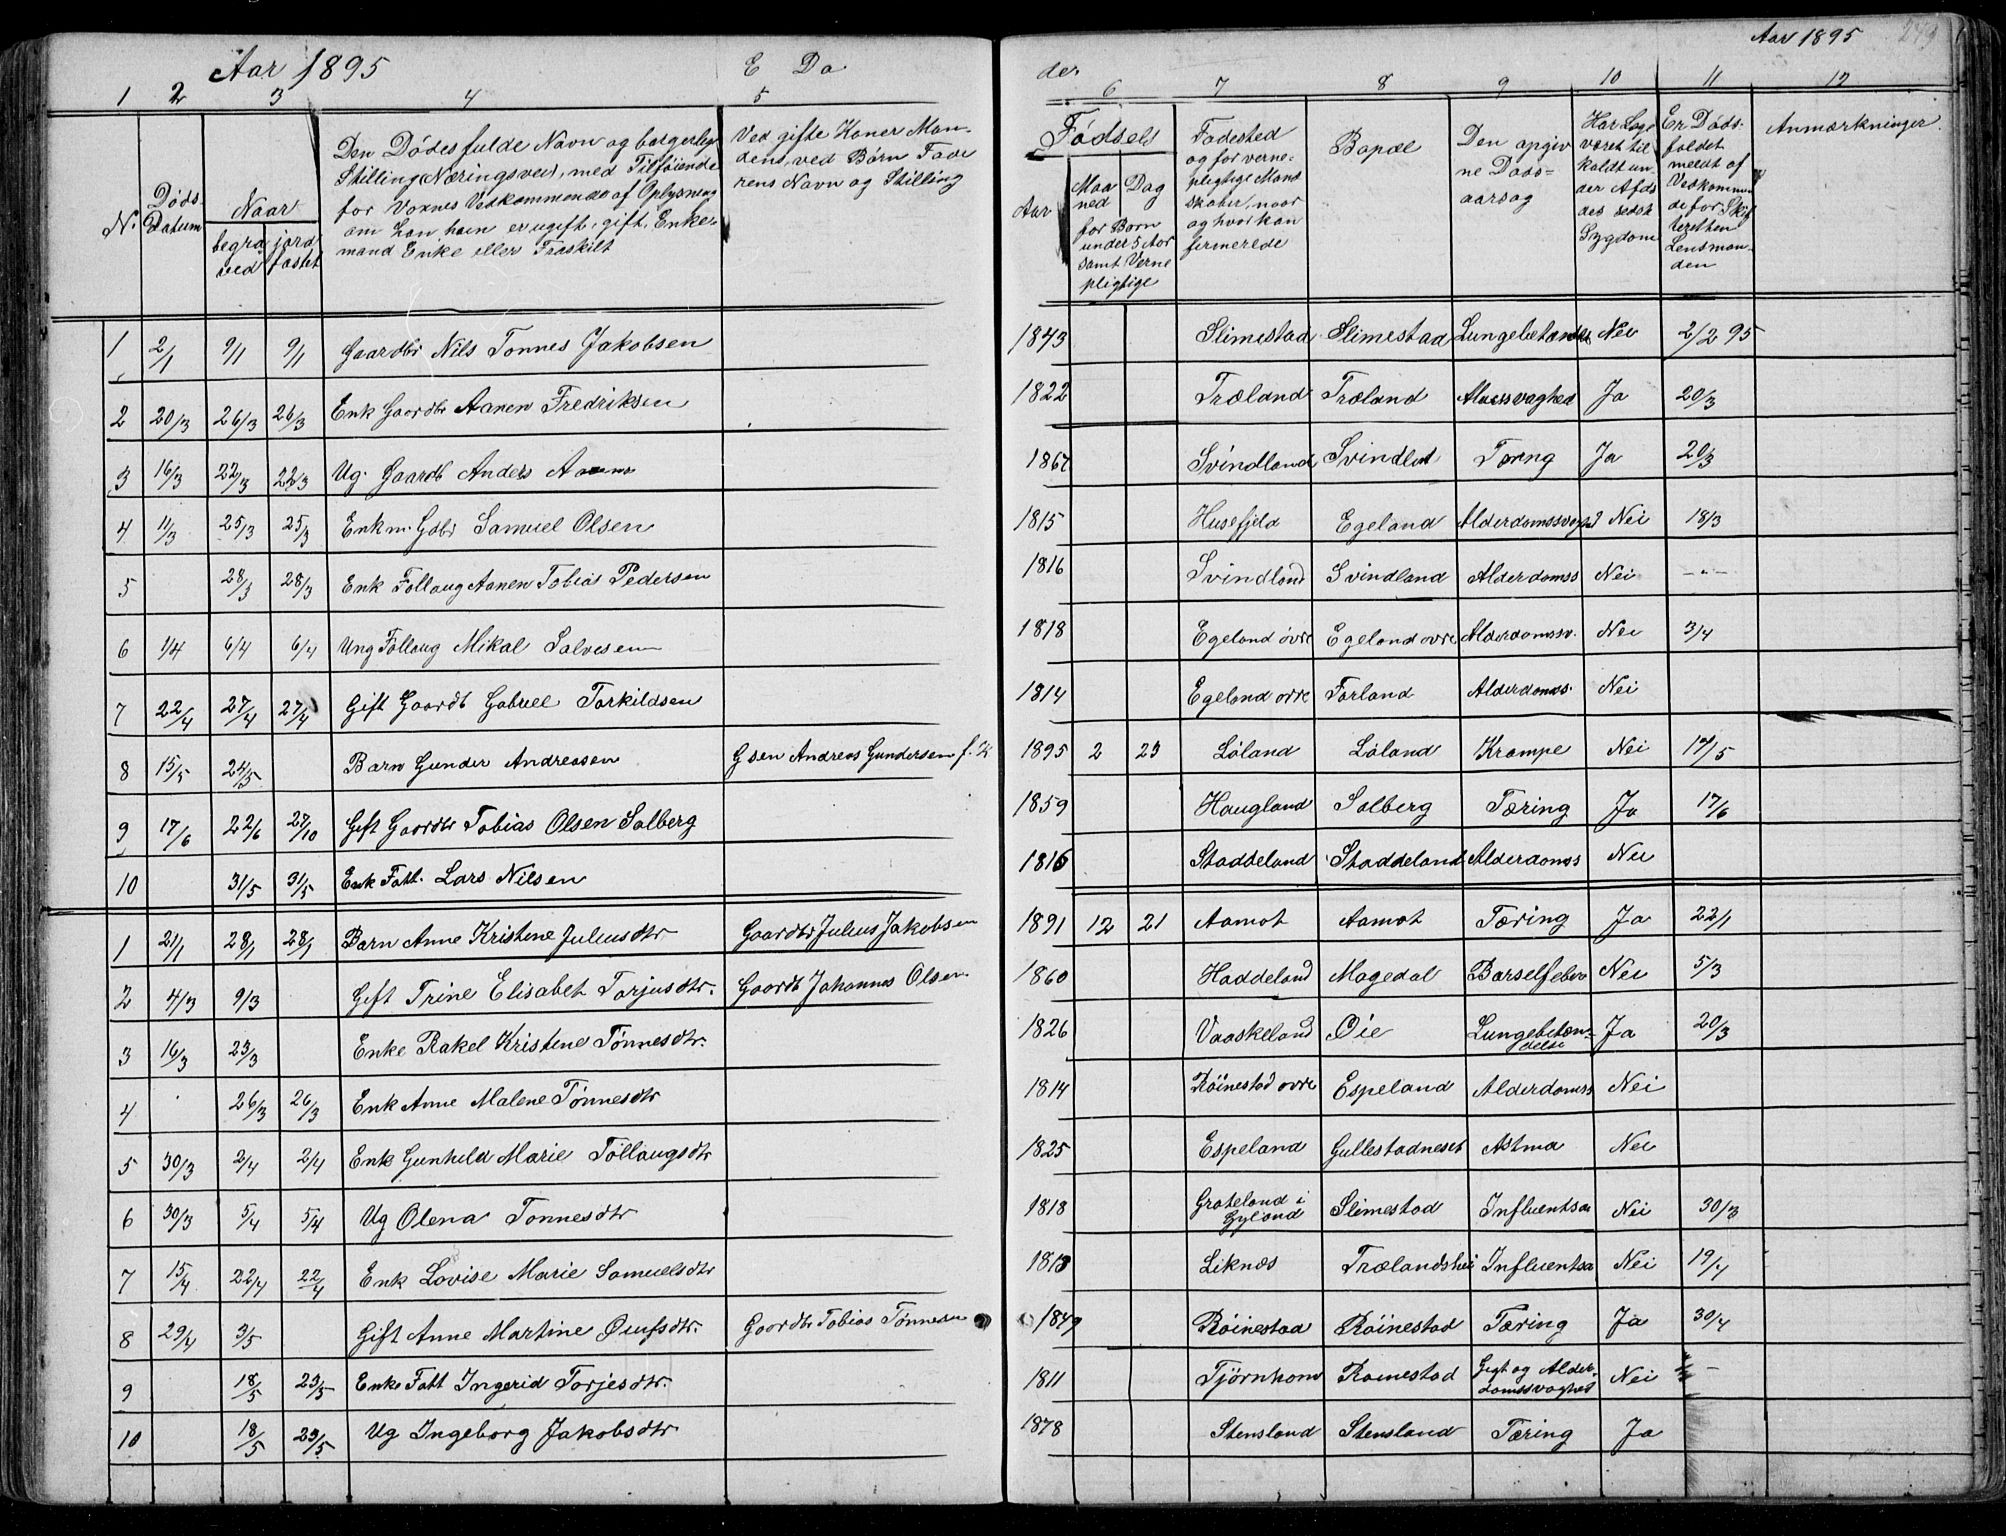 Aar 1895 E Dö
1 2 3 4 5
N. Døds-Datum Naar begravet jordfæstet Den Dødes fulde Navn og borgerlige Stilling (Næringsvei), med Tilføiende for Voxnes Vedkommende af Oplysning om han hun er ugift, gift, Enkemand Enke eller Fraskilt Ved gifte Koner Mandens, ved Børn Faderens Navn og Stilling
1 2/1 9/1 9/1 Gaardbr Nils Tønnes Jakobsen
2 20/3 26/3 26/3 Enk Gaardbr Aanen Fredriksen
3 16/3 22/3 22/3 Ug. Gaardb Anders
4 11/3 25/3 25/3 Enkm. Gdbr Samuel Olsen
5 28/3 28/3 Enk Follaug Aanen Tobias Pedersen
6 1/4 6/4 6/4 Ung Follaug Mikal Salvesen
7 22/4 27/4 27/4 Gift Gaardb Gabriel Torkildsen
8 15/5 24/5 Barn Gunder Andreasen Andreas Gundersen
9 17/6 22/6 27/10 Gift Gaardbr Tobias Olsen Solberg
10 31/5 31/5 Enk Fatt. Lars Nilsen
1 21/1 28/1 28/1 Barn Anne Kristene Juliusdtr Gaardbr Julius Jakobsen
2 4/3 9/3 Gift Trine Elisabet Torjusdtr. Gaardb Johannes Olsen
3 16/3 23/3 Enke Rakel Kristene Tønnesdtr.
4 26/3 26/3 Enk Anne Malene Tønnesdtr
5 30/3 2/4 2/4 Enk Gunhild Marie Tollaugsdtr
6 30/3 5/4 5/4 Ug Olena Tønnesdtr
7 15/4 22/4 22/4 Enk Lovise Marie Samuelsdtr
8 29/4 3/5 Gift Anne Martine Gaardbr Tobias Tønnesen
9 18/5 23/5 Enke Fatt Ingerid Torjesdtr.
10 18/5 23/5 Ug Ingeborg Jakobsdtr
de. Aar 1895
6 7 8 9 10 11 12
Fødsels Aar Maaned Dag for Børn under 5 Aar samt Vernepligtige Fødested og for vernepligtige Mandskaber, naar og hvor konfirmerede Bopæl Den opgivne Dødsaarsag Har Læge været tilkaldt under Afdødes sidste Sygdom Er Dødsfaldet meldt af Vedkommende for Skifteretten Lensmanden Anmærkninger
1843 Slimestad Slimestad Lungebetændelse Nei 2/2 95
1822 Træland Træland Ja 20/3
1867 Svindland Svindland Tæring Ja 20/3
1815 Husefjeld Egeland Alderdomssvagh Nei 18/3
1816 Svindland Svindland Alderdomss Nei -"-
1818 Egeland øvre Egeland øvre Alderdomssv. Nei 3/4
1814 Egeland øvre Førland Alderdomss. Nei
1895 2 23 Løland Løland Krampe Nei 17/5
1859 Haugland Solberg Tæring Ja 17/6
1816 Staddeland Staddeland Alderdomss Nei
1891 12 21 Aamot Aamot Tæring Ja 22/1
1860 Haddeland Magedal Barselfeber Nei 5/3
1826 Vaaskeland Øie Lungebetændelse Ja 20/3
1814 Røinestad øvre Espeland Alderdomss Nei
1825 Espeland Gullestadneset Astma Nei
1818 Grøteland i Gyland Slimestad Influentsa Nei 30/3
1813 Liknæs Trælandshei Influentsa Nei 19/4
1849 Røinestad Røinestad Tæring Ja 30/4
1811 Tjørnhom Røinestad Gigt og Alderdomssvaghet Nei
1878 Stensland Stensland Tæring Ja